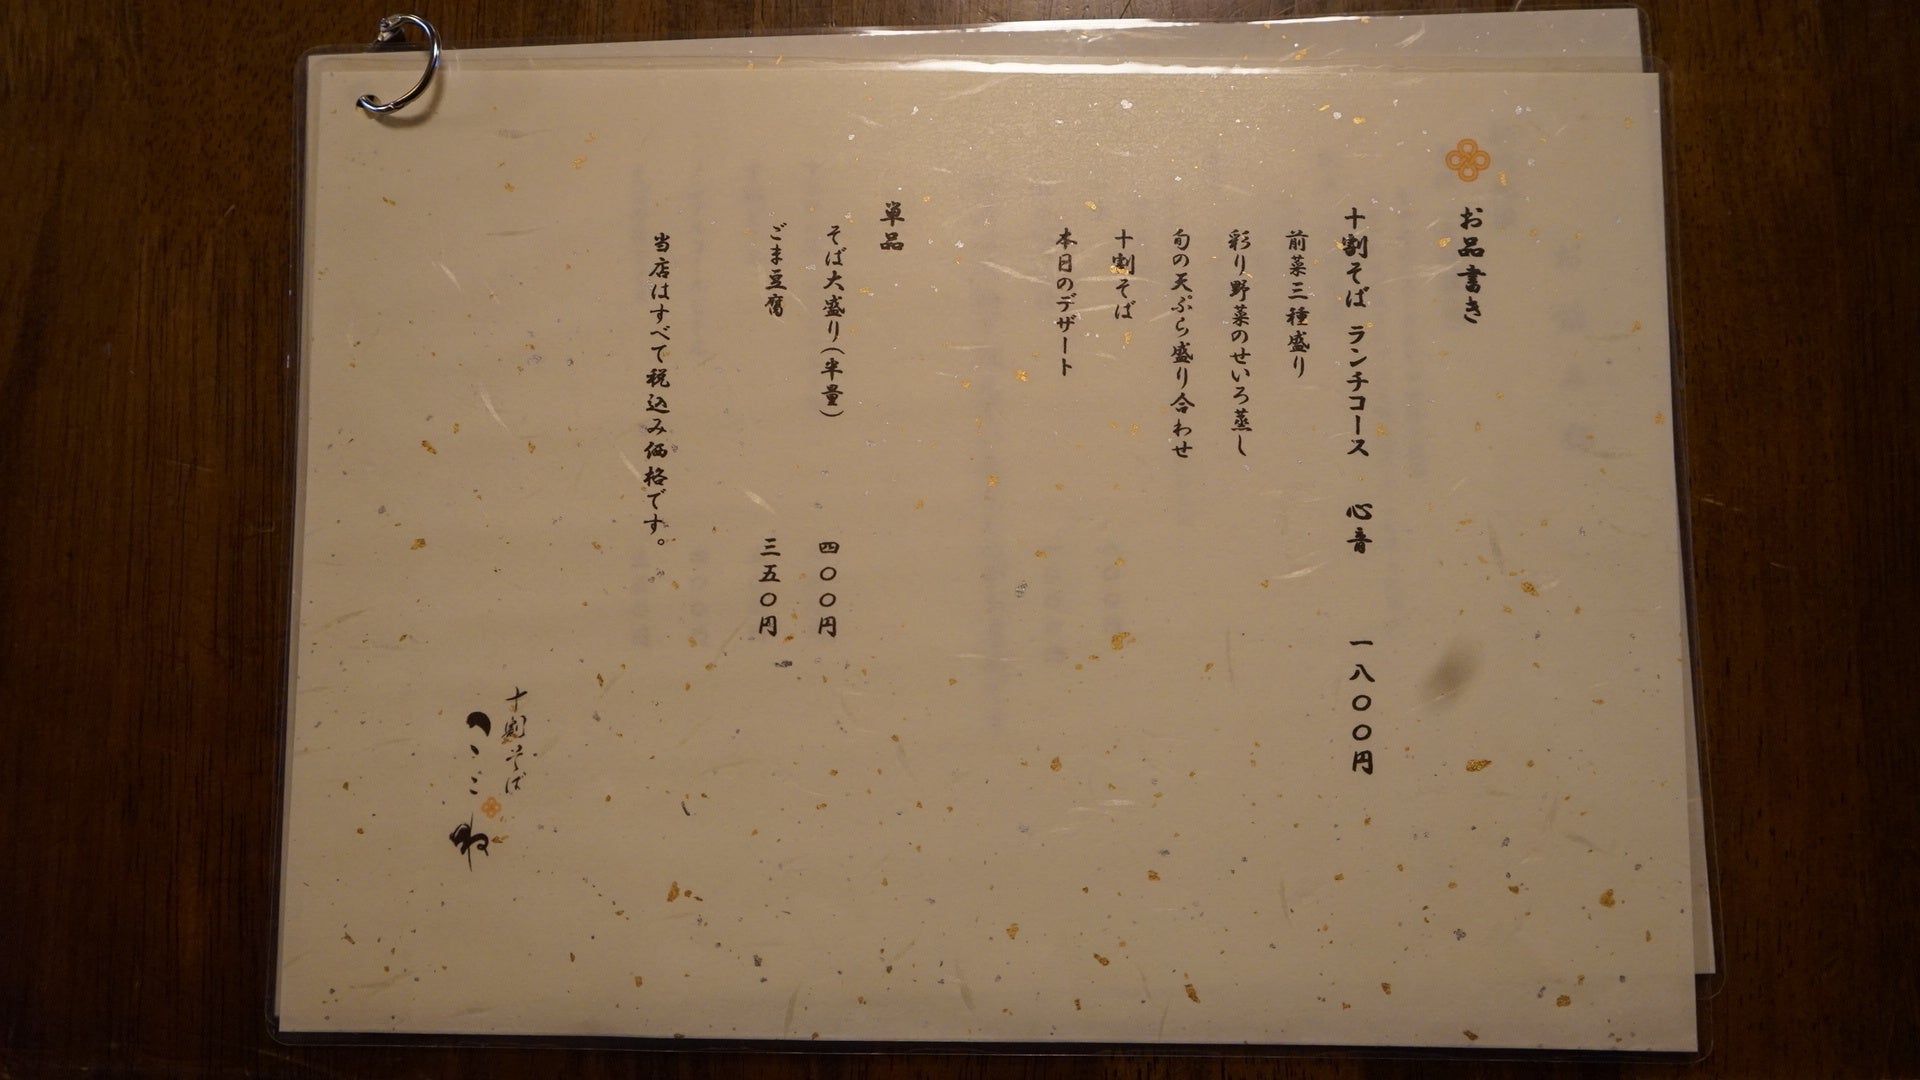 お品書き
十割そば ランチコース 心音 一八〇〇円
前菜三種盛り
彩り野菜のせいろ蒸し
旬の天ぷら盛り合わせ
十割そば
本日のデザート
単品
そば大盛り(半量) 四〇〇円
ごま豆腐 三五〇円
当店はすべて税込み価格です。
十割そば